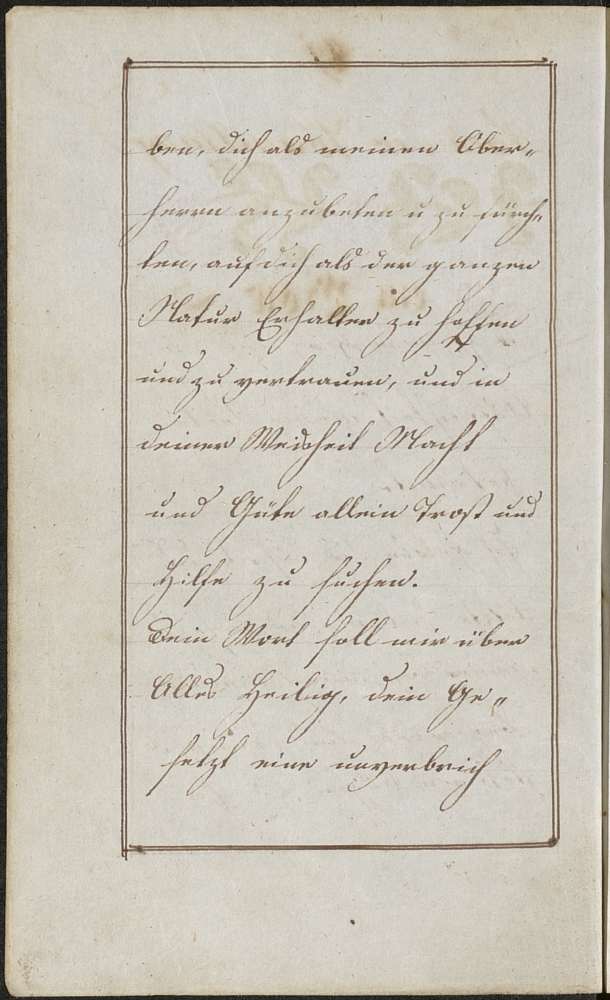 ben, dich als meinen Ober„
herrn anzubeten u zu fürch„
ten, auf dich als der ganzen
Natur Erhalter zu hoffen
und zu vertrauen, und in
deiner Weisheit Macht
und Güte allein Trost und
Hilfe zu suchen.
Dein Wort soll mir über
Alles Heilig, dein Ge„
setzt eine unverbrich